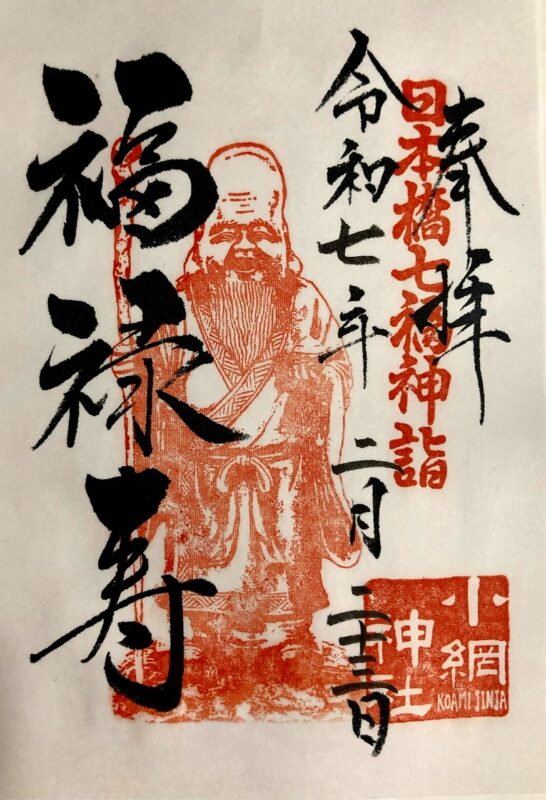 奉拝
日本橋七福神詣
令和七年二月二十三日
福禄寿
小網
神社
KOAMI JINJA